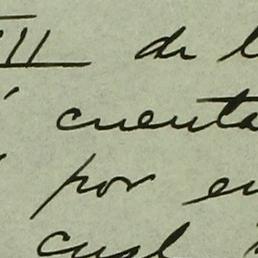 III de l
cuenta
por en
cual